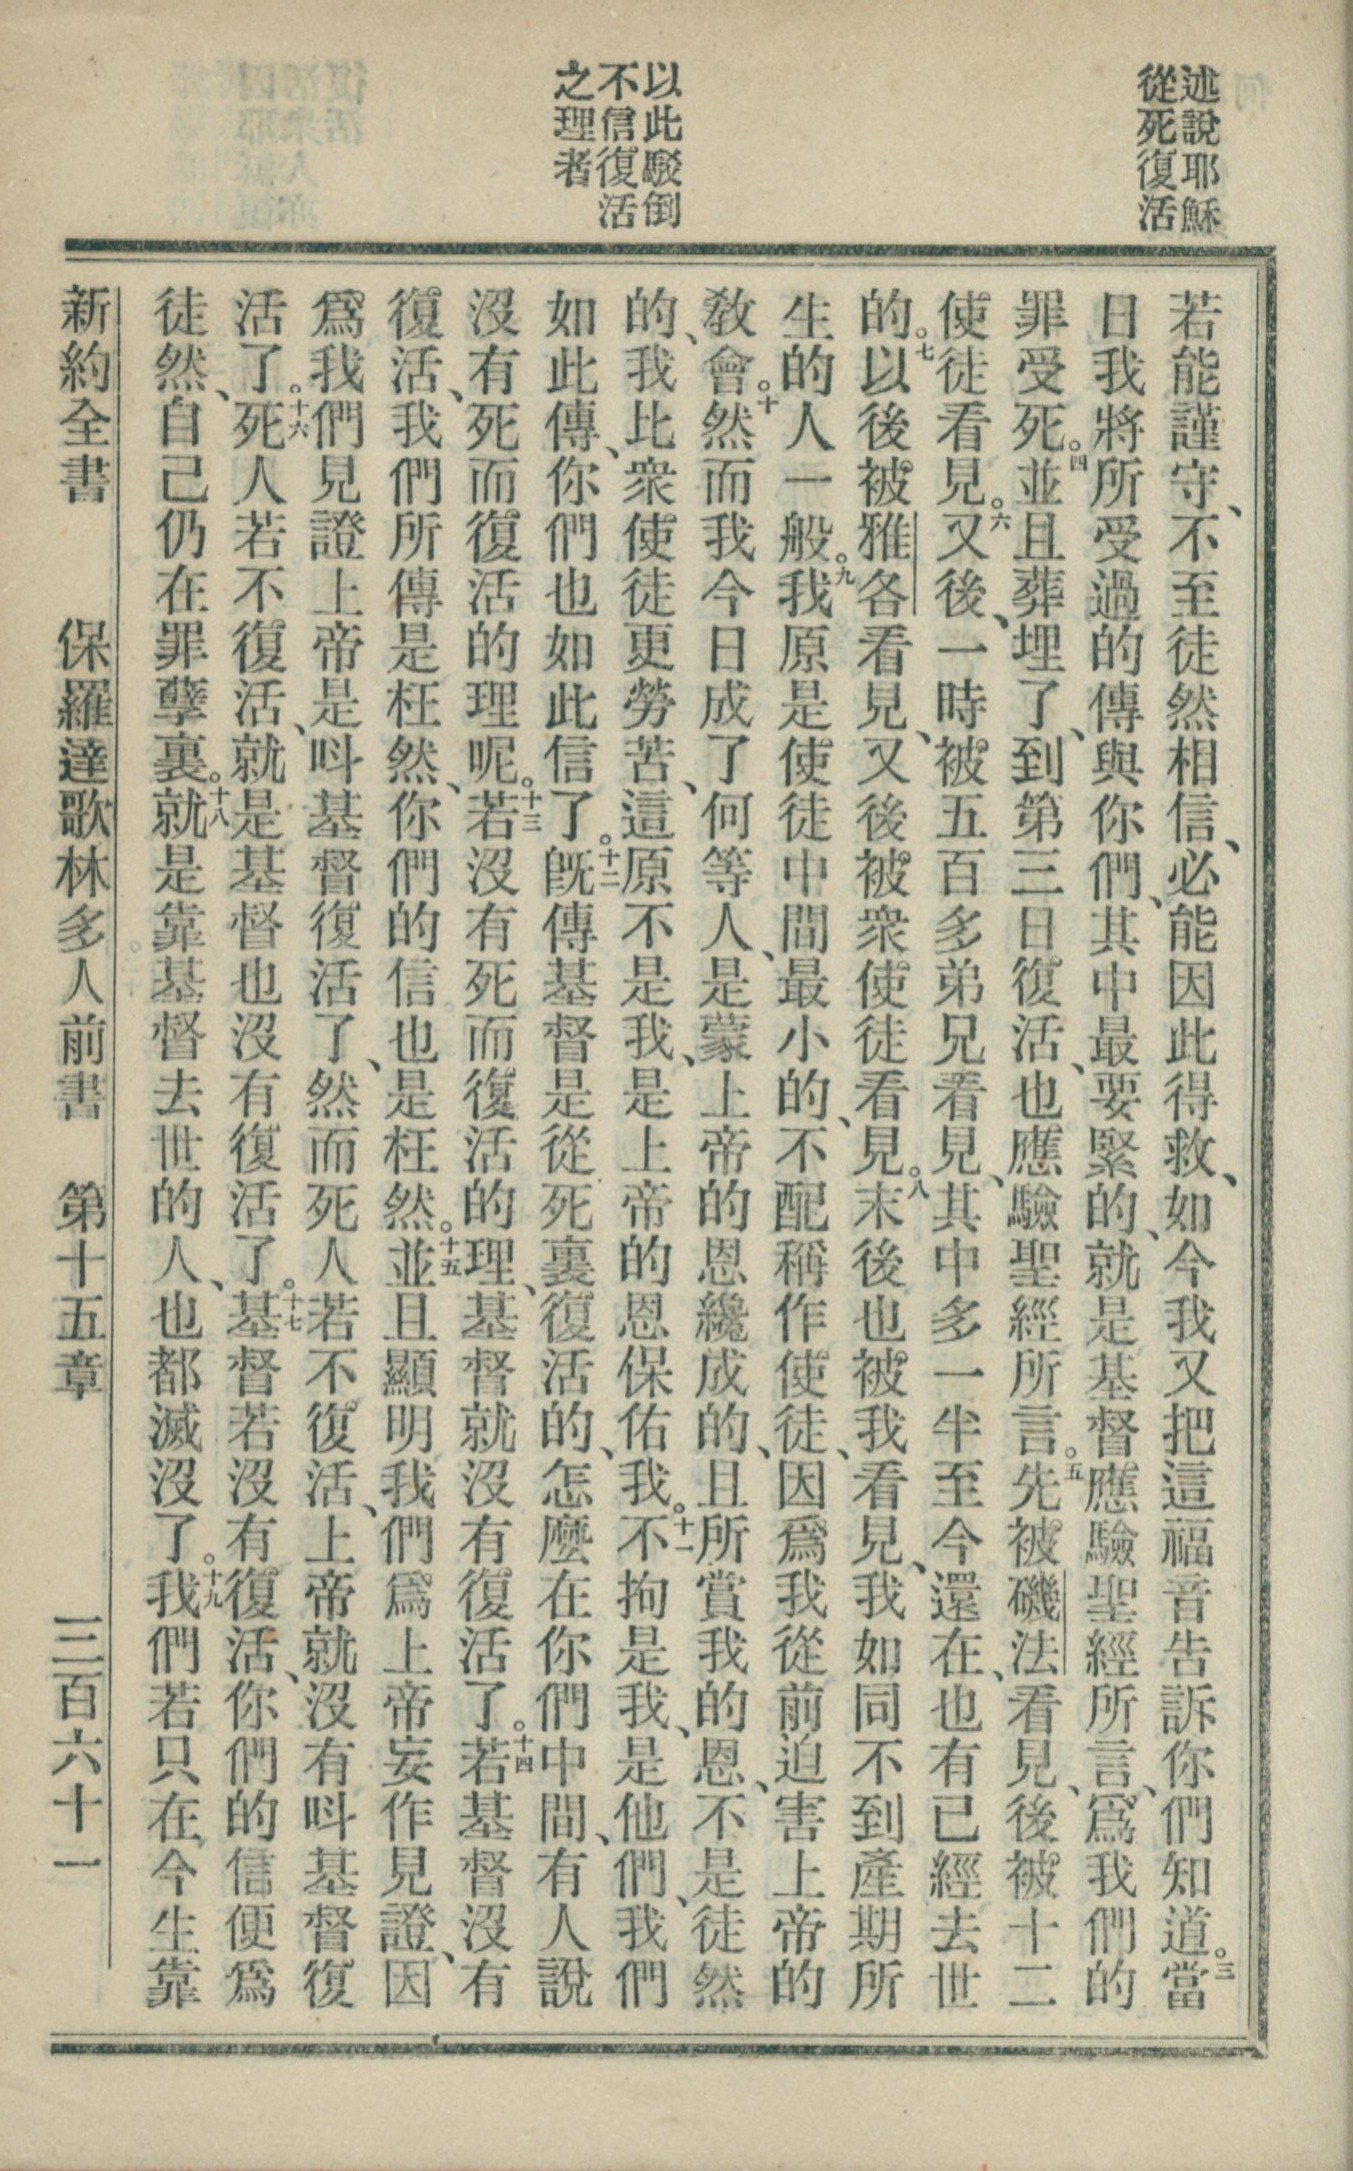 述說耶穌
從死復活
以此駁倒
不信復活
之理者
若能謹守、不至徒然相信、必能因此得救、如今我又把這福音告訴你們知道。三當
日我將所受過的傳與你們、其中最要緊的、就是基督應驗聖經所言、爲我們的
罪受死。四並且葬埋了、到第三日復活、也應驗聖經所言。五先被磯法看見、後被十二
使徒看見。六又後、一時被五百多弟兄看見、其中多一半至今還在、也有已經去世
的。七以後被雅各看見、又後被衆使徒看見。八末後也被我看見、我如同不到產期所
生的人一般。九我原是使徒中間最小的、不配稱作使徒、因爲我從前迫害上帝的
教會。十然而我今日成了何等人、是蒙上帝的恩纔成的、且所賞我的恩、不是徒然
的、我比衆使徒更勞苦、這原不是我、是上帝的恩保佑我。十一不拘是我、是他們、我們
如此傳、你們也如此信了。十二旣傳基督是從死裏復活的、怎麼在你們中間、有人說
沒有死而復活的理呢。十三若沒有死而復活的理、基督就沒有復活了。十四若基督沒有
復活、我們所傳是枉然、你們的信也是枉然。十五並且顯明我們爲上帝妄作見證、因
爲我們見證上帝是呌基督復活了、然而死人若不復活、上帝就沒有呌基督復
活了。十六死人若不復活、就是基督也沒有復活了。十七基督若沒有復活、你們的信便爲
徒然、自己仍在罪孽裏。十八就是靠基督去世的人、也都滅沒了。十九我們若只在今生靠
新約全書 保羅達歌林多人前書 第十五章 三百六十一